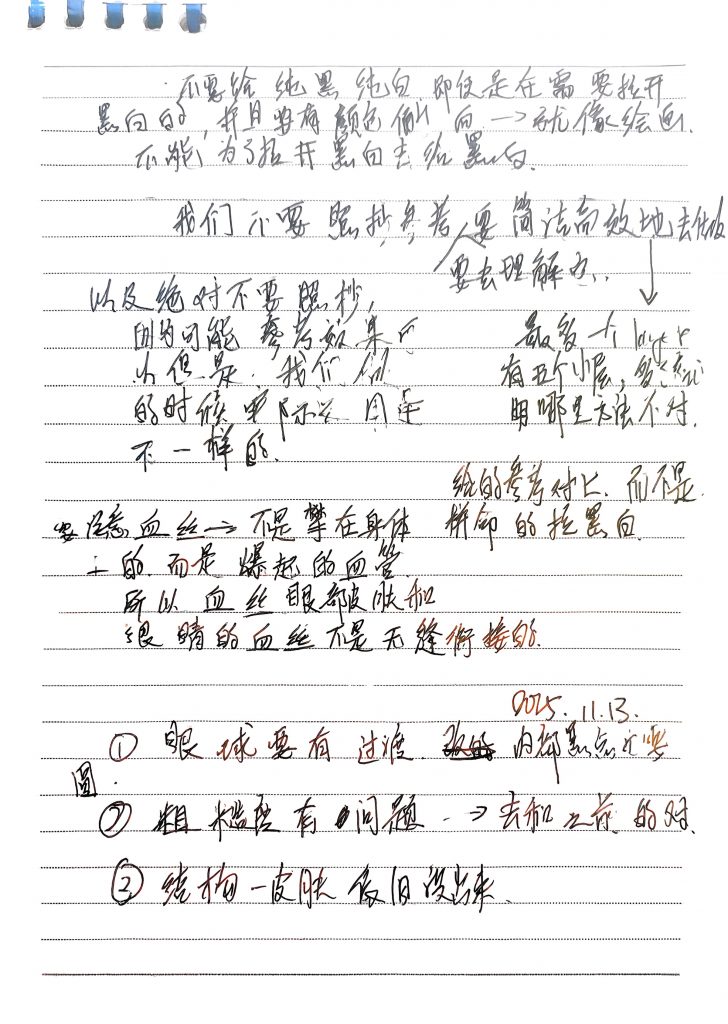 不要给纯黑纯白,即使是在需要拉开
黑白的,并且要有颜色倾向→就像绘画.
不能为了拉开黑白去给黑白.
我们不要照抄参考,要简洁高效地去做
要去理解它..
以及绝对不要照抄,
因为可能参考效果可
以但是,我们做
的时候实际
不一样的.
最多一个layer
有五个小层,多
明哪里方法不对.
给的参考对比,而不是
拼命的拉黑白.
要注意血丝→不是攀在身体
上的.而是爆起的血管
所以血丝眼部皮肤和
眼睛的血丝不是无缝衔接的.
2025.11.13.
① 眼球要有过渡. 内部黑点
圆.
② 粗糙度有问题.→去和之前的对.
③ 结构—皮肤做旧没出来.